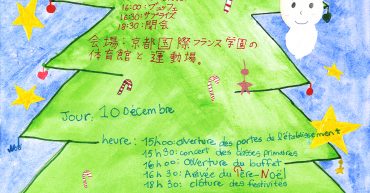 16:00:ブッフェ
16:30:サプライズ
18:30:閉会
会場:京都国際フランス学園の
体育館と運動場。
Jour: 10 Décembre
heure: 15h00 ouverture des portes de l'établissement
15h30: concert des classes primaires
16h00: Ouverture du buffet
16h30: Arrivée du Père-Noël
18h30: clôture des festivités